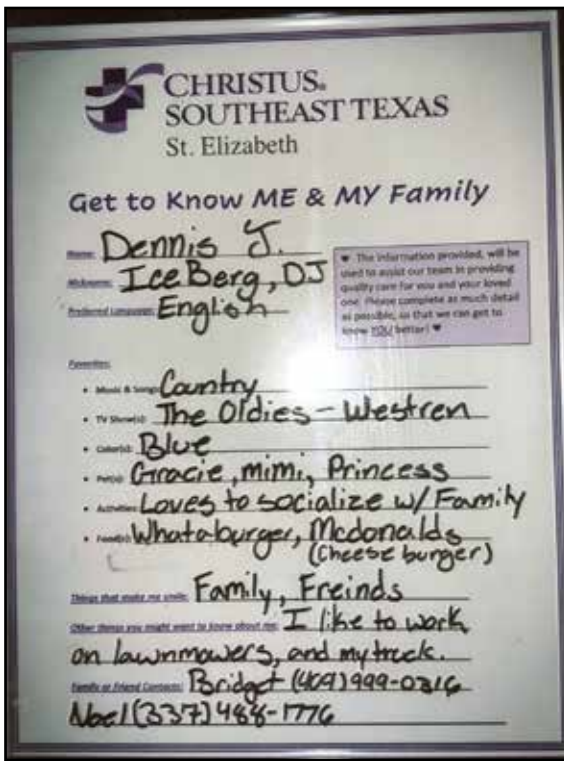 CHRISTUS.
SOUTHEAST TEXAS
St. Elizabeth
Get to Know ME & MY Family
Name: Dennis J.
Nickname: IceBerg, DJ
Preferred Language: English
♥ The information provided, will be
used to assist our team in providing
quality care for you and your loved
one. Please complete as much detail
as possible, so that we can get to
know YOU better! ♥
Favorites:
• Music & Songs: Country
• TV Show(s): The Oldies - Westren
• Color(s): Blue
• Pet(s): Gracie, mimi, Princess
• Activities: Loves to socialize w/ Family
• Food(s): Whataburger, Mcdonalds
(Cheese burger)
Things that make me smile: Family, Freinds
Other things you might want to know about me: I like to work
on lawnmowers, and my truck.
Family or Friend Contacts: Bridget (409) 999-0316
Noel (337) 488-1776